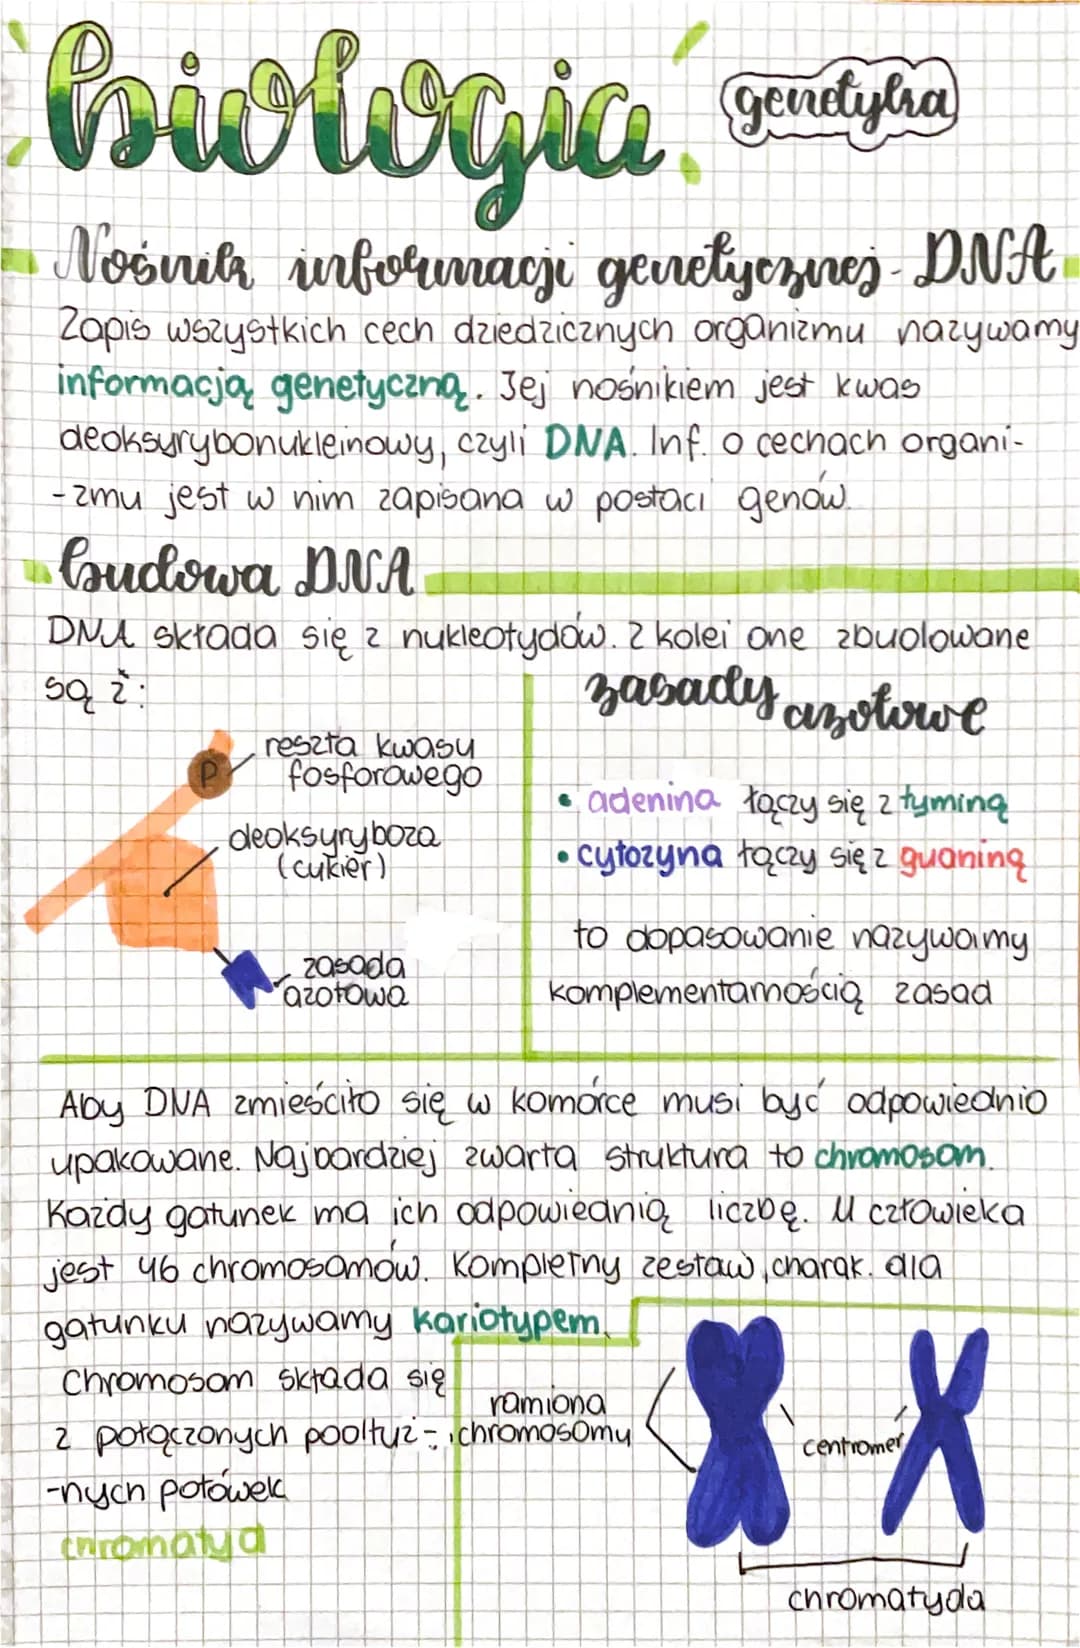 biologia
genetyka
Nośnik informacji genetycznej - DNA
Zapis wszystkich cech dziedzicznych organizmu nazywamy
informacją genetyczną. Jej nośnikiem jest kwas
deoksyrybonukleinowy, czyli DNA. Inf. o cechach organi-
-zmu jest w nim zapisana w postaci genów.
budowa DNA
DNA składa się z nukleotydów. Z kolei one zbudowane
są z:
reszta kwasu
fosforowego
P
deoksyryboza
(cukier)
zasada
azotowa
zasady azotowe
• adenina łączy się z tyminą
• cytozyna łączy się z guaniną
to dopasowanie nazywamy
komplementarnością zasad
Aby DNA zmieściło się w komórce musi być odpowiednio
upakowane. Najbardziej zwarta struktura to chromosom.
Każdy gatunek ma ich odpowiednią liczbę. U człowieka
jest 46 chromosomów. Kompletny zestaw, charak. dla
gatunku nazywamy kariotypem.
Chromosom składa się
z połączonych podłuż-
-nych połówek
chromatyd
ramiona
chromosomu
centromer
chromatyda